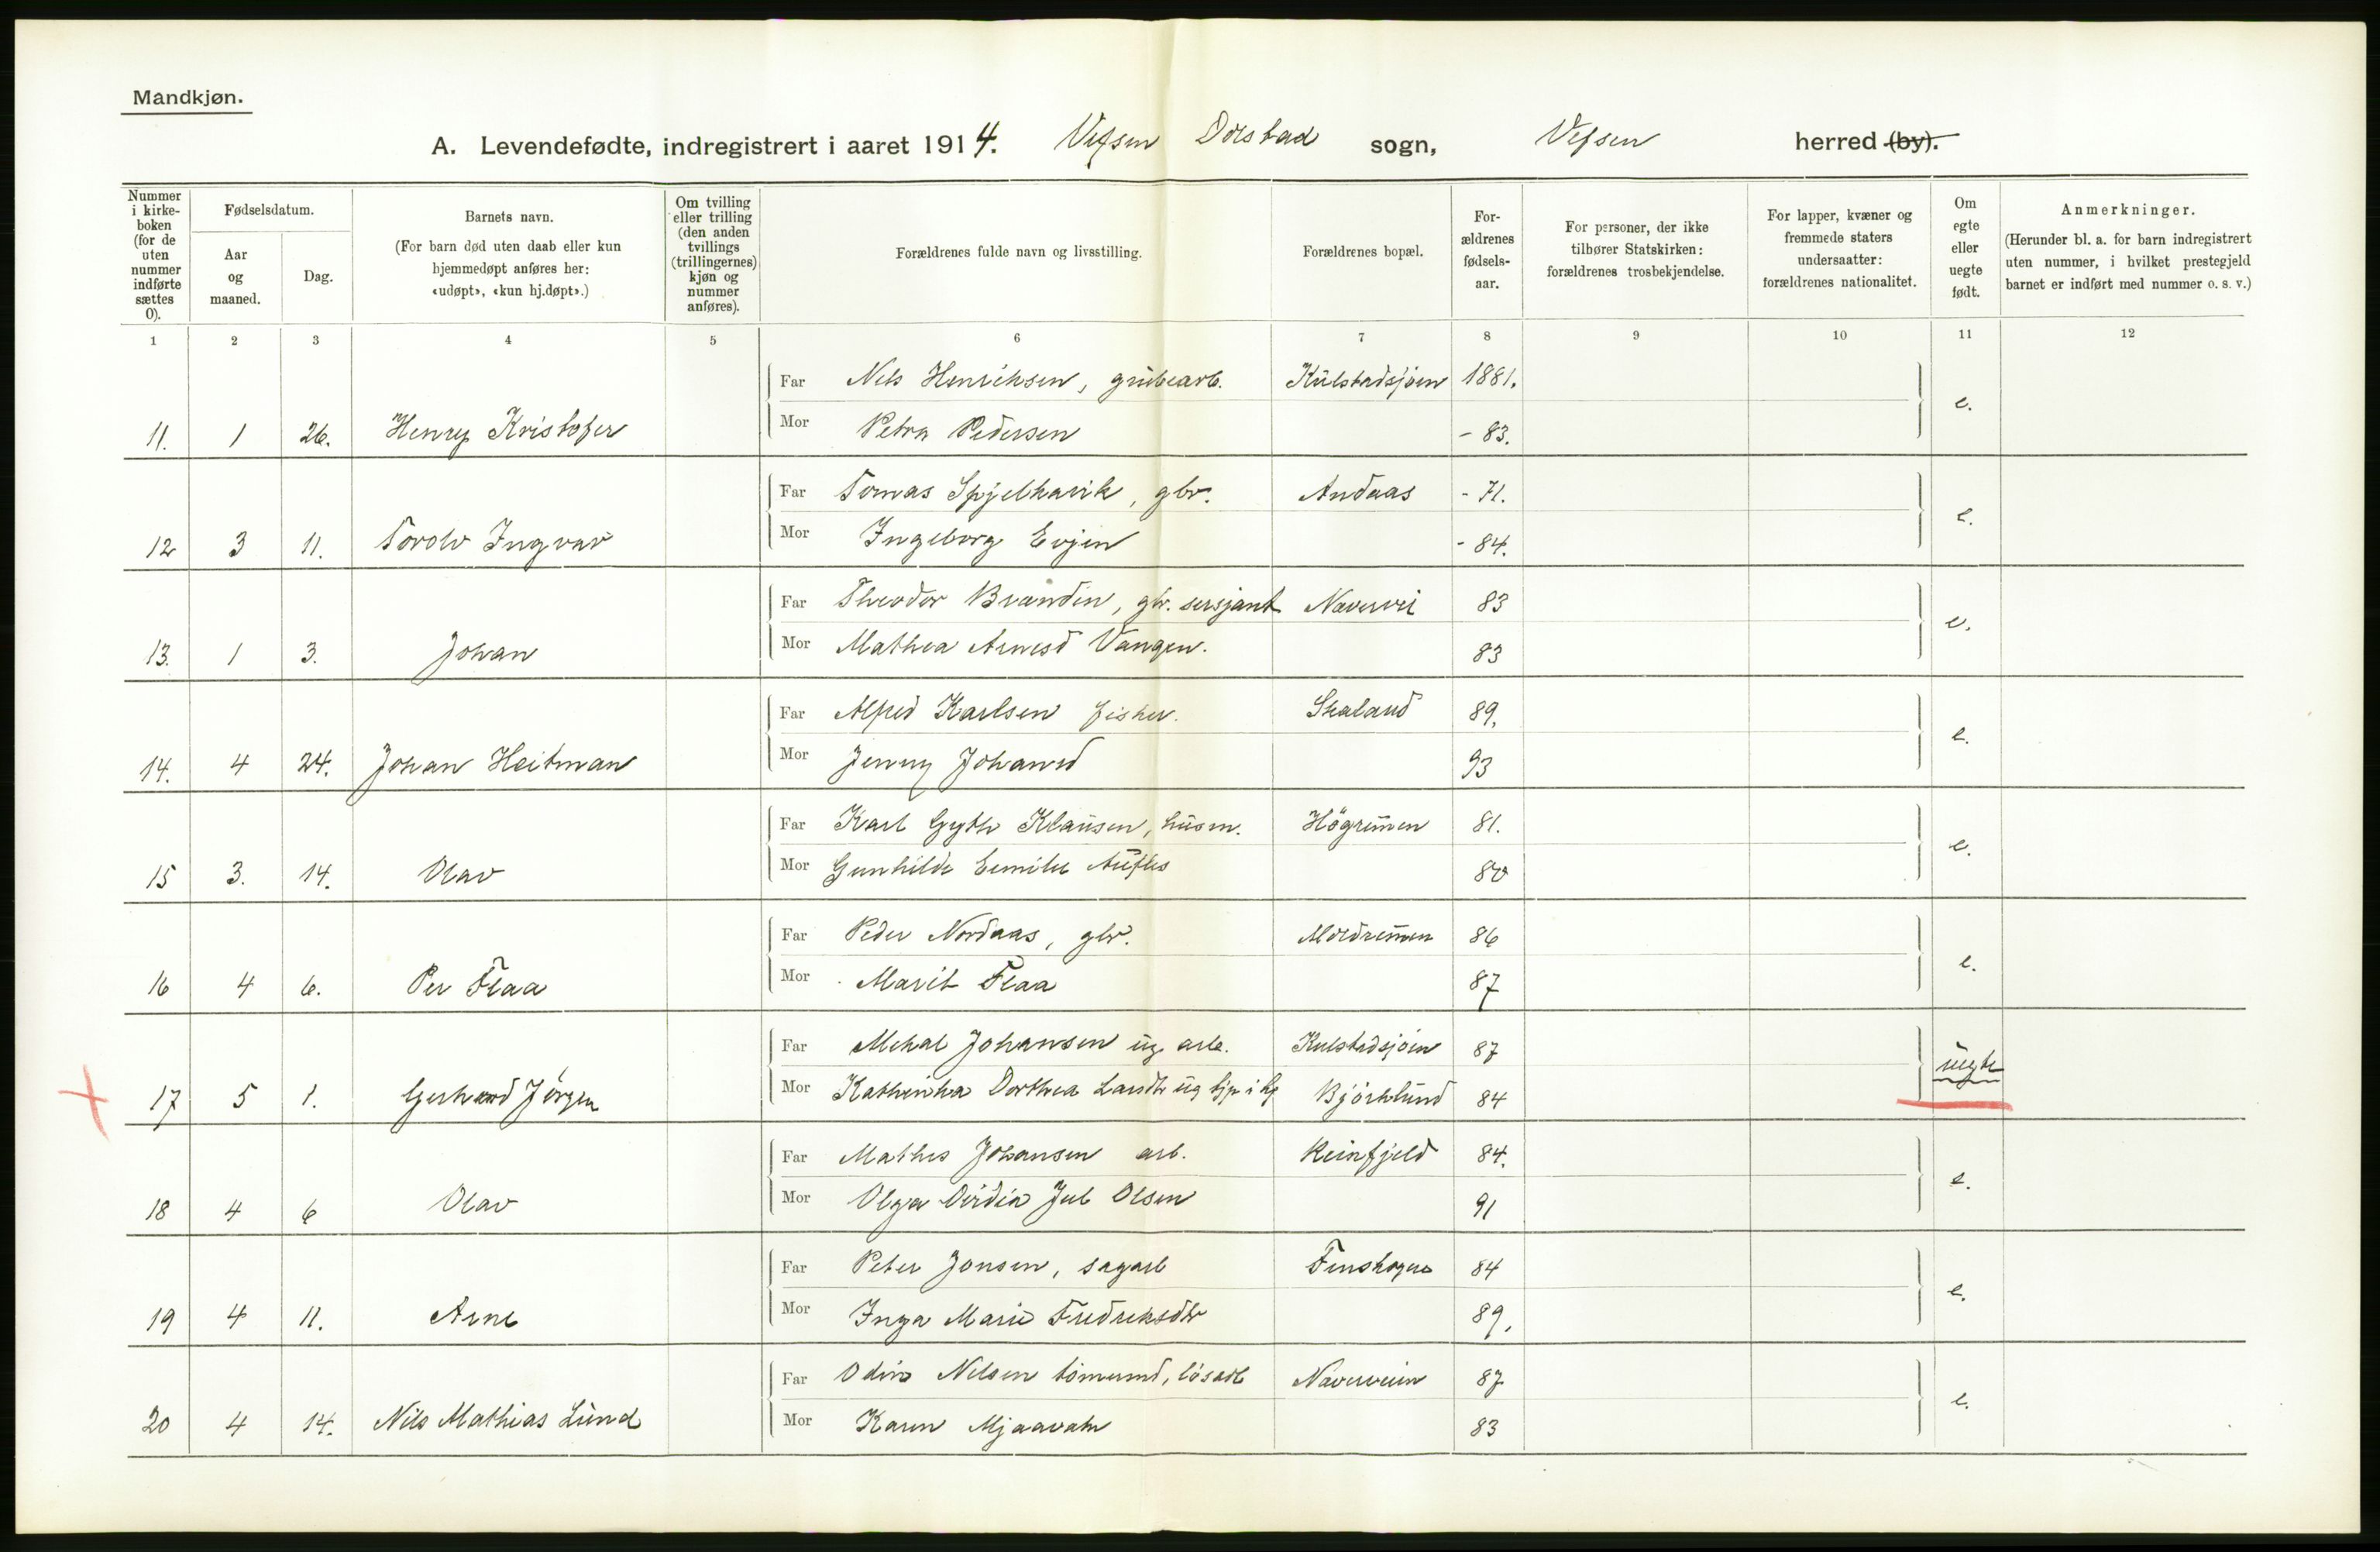 Mandkjøn.
A. Levendefødte, indregistrert i aaret 1914. Vefsen Dolstad sogn, Vefsen herred (by).
Nummer i kirkeboken (for de uten nummer indførte sættes 0).
Fødselsdatum.
Aar og maaned.
Dag.
Barnets navn.
(For barn død uten daab eller kun hjemmedøpt anføres her: «udøpt», «kun hj.døpt».)
Om tvilling eller trilling (den anden tvillings (trillingernes) kjøn og nummer anføres).
Forældrenes fulde navn og livsstilling.
Forældrenes bopæl.
Forældrenes fødselsaar.
For personer, der ikke tilhører Statskirken: forældrenes trosbekjendelse.
For lapper, kvæner og fremmede staters undersaatter: forældrenes nationalitet.
Om egte eller uegte født.
Anmerkninger.
(Herunder bl. a. for barn indregistrert uten nummer, i hvilket prestegjeld barnet er indført med nummer o. s. v.)
1 2 3 4 5 6 7 8 9 10 11 12
Far Nels Henriksen, grubearb. Kulstadsjøen 1881.
11. 1 26. Henry Kristofer Mor Petra Pedersen - 83. e.
Far Tomas Spjelkavik, gbr. Andaas - 71.
12 3 11. Torolv Ingvar Mor Ingeborg Evjen - 84. e.
Far Theodor Brandin, gbr. sersjant Navervei 83
13. 1 3. Johan Mor Mathea Arnesd Vangen. 83 e.
Far Alfred Karlsen fisker. Skaland 89.
14. 4 24. Johan Heitman Mor Jenny Johansd 93 e.
Far Karl Gyth Klausen, husm. Högremen 81.
15 3. 14. Olav Mor Gunhilde Eemilie Aufles 80 e.
Far Peder Nordaas, gbr. 86
16 4 6. Per Flaa Mor Marit Flaa 87 e.
Far Mekal Johansen ug. arb. Kulstadsjöen 87
17 5 1. Gerhard Jörgen Mor Kathinka Dorthea Larsdtr ug Bjørklund 84 uegte
Far Mathis Johansen arb. Reinfjeld 84.
18 4 6 Olav Mor Olga Jul Olsen 91 e.
Far Peter Jonsen, sagarb Finskogen 84
19 4 11. Arne Mor Inga Marie Fredreksdtr 89. e.
Far Odin Nelsen tömmmd, lösarb Naverveien 87
20 4 14. Nils Mathias Lund Mor Karen Mjaavatn 83 e.